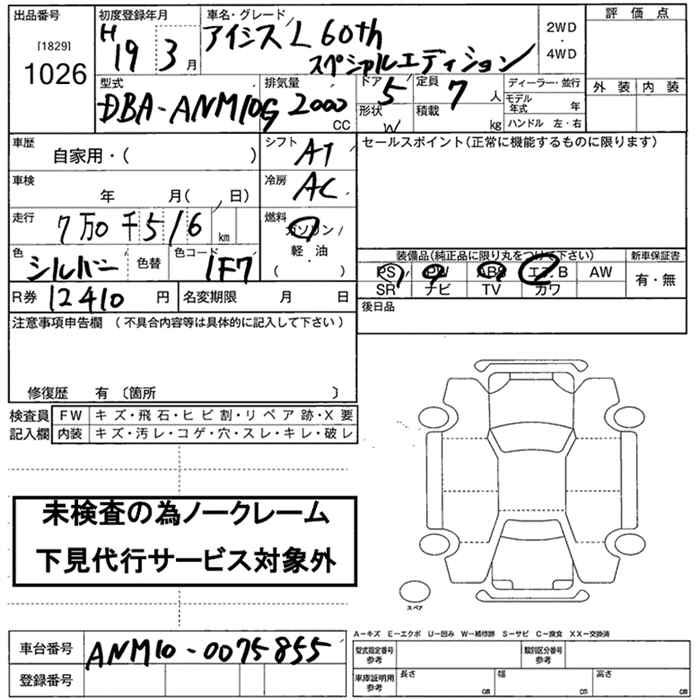 出品番号 初度登録年月 車名・グレード 2WD・4WD 評価点
[1829]
1026
H19 3月
アイシス L 60th
スペシャルエディション
外装 内装
型式 DBA-ANM10G
排気量 2000 CC
ドア 5 形状 W
定員 7 人 積載 kg
ディーラー・並行
モデル年式 年
ハンドル 左・右
車歴 自家用・( )
シフト AT
セールスポイント(正常に機能するものに限ります)
車検 年 月( 、日)
冷房 AC
走行 7万0千516 km
燃料 ガソリン 軽・油 ( )
色 シルバー 色替 色コード 1F7
装備品(純正品に限り丸をつけて下さい) 新車保証書
PS PW ABS エアB AW 有・無
SR ナビ TV カワ
R券 12410 円 名変期限 月 日
後日品
注意事項申告欄 (不具合内容等は具体的に記入して下さい)
修復歴 有 〔箇所 〕
検査員 FW キズ・飛石・ヒビ割・リペア跡・X要
記入欄 内装 キズ・汚レ・コゲ・穴・スレ・キレ・破レ
未検査の為ノークレーム
下見代行サービス対象外
スペア
A-キズ E-エクボ U-凹み W-補修跡 S-サビ C-腐食 XX-交換済
車台番号 ANM10-0075855
型式指定番号 参考 類別区分番号 参考
登録番号
車庫証明用 参考 長さ cm 幅 cm 高さ cm